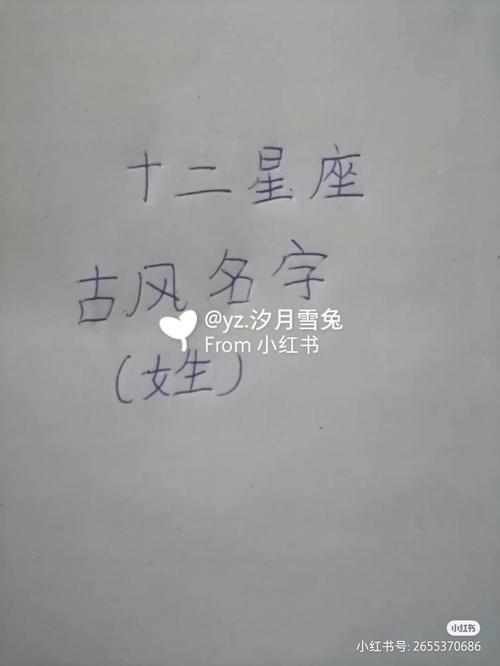 十二星座
古风名字
@yz.汐月雪兔
From 小红书
(女生)
小红书
小红书号: 2655370686